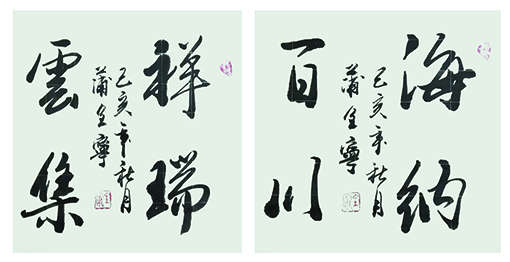 祥瑞
雲集
己亥年秋月
蒲全寧
海納
百川
己亥年秋月
蒲全寧